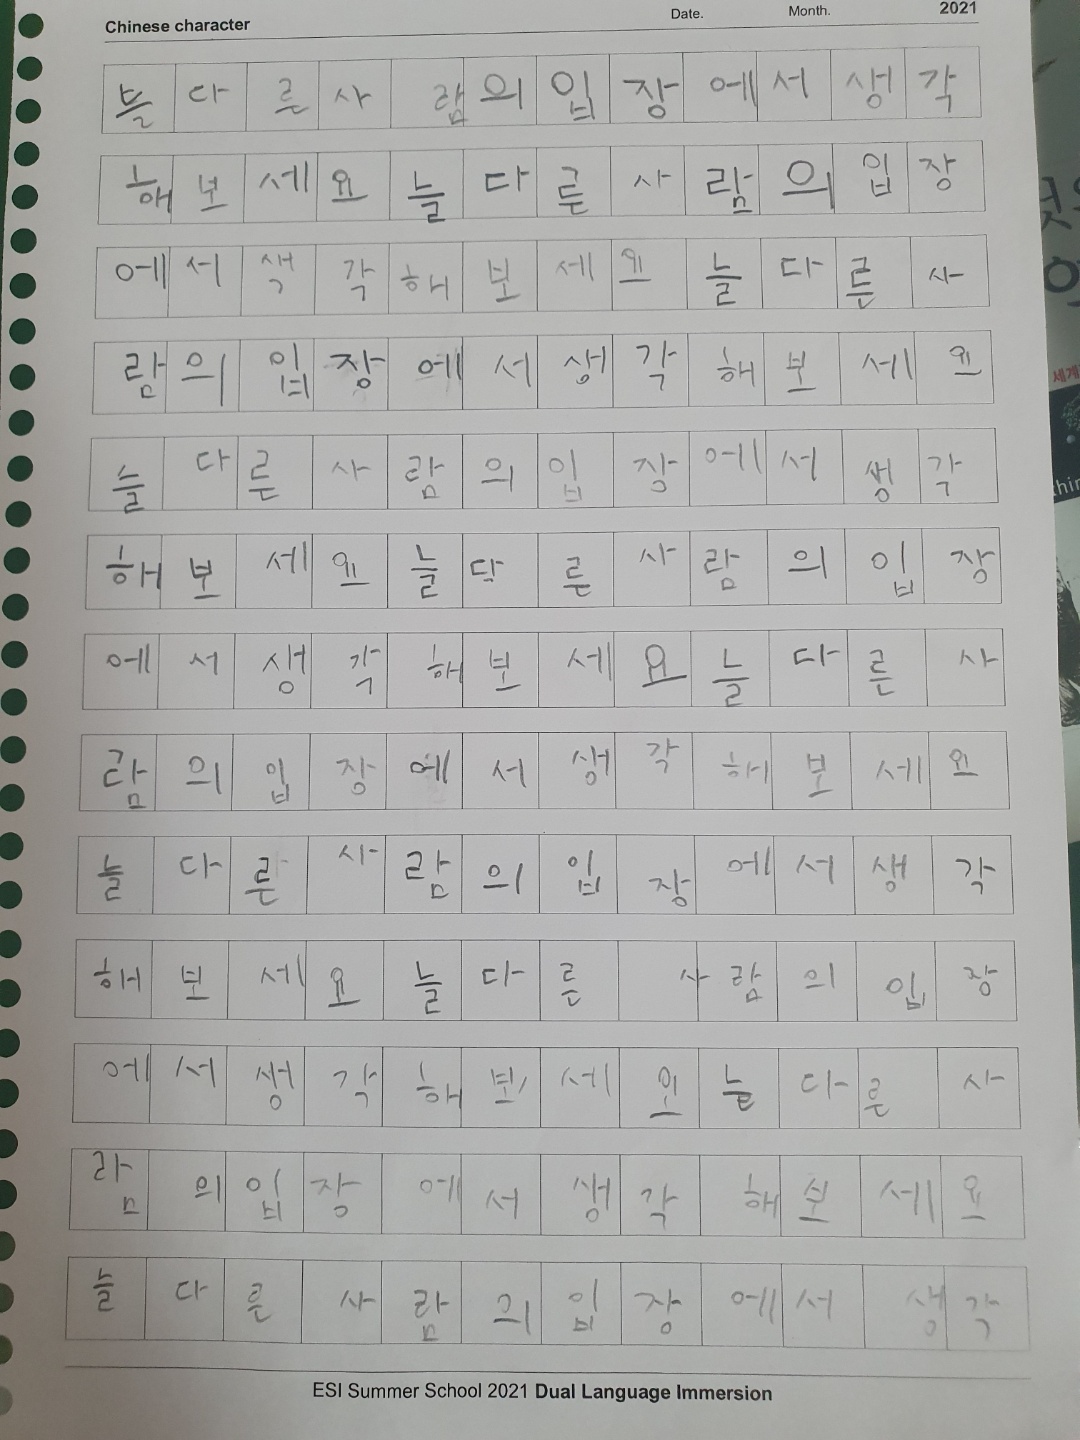 Chinese character Date. Month. 2021
늘 다 른 사 람 의 입 장 에 서 생 각
해 보 세 요 늘 다 른 사 람 의 입 장
에 서 생 각 해 보 세 요 늘 다 른 사
람 의 입 장 에 서 생 각 해 보 세 요
늘 다 른 사 람 의 입 장 에 서 생 각
해 보 세 요 늘 다 른 사 람 의 입 장
에 서 생 각 해 보 세 요 늘 다 른 사
람 의 입 장 에 서 생 각 해 보 세 요
늘 다 른 사 람 의 입 장 에 서 생 각
해 보 세 요 늘 다 른 사 람 의 입 장
에 서 생 각 해 보 세 요 늘 다 른 사
람 의 입 장 에 서 생 각 해 보 세 요
늘 다 른 사 람 의 입 장 에 서 생 각
ESI Summer School 2021 Dual Language Immersion
세계